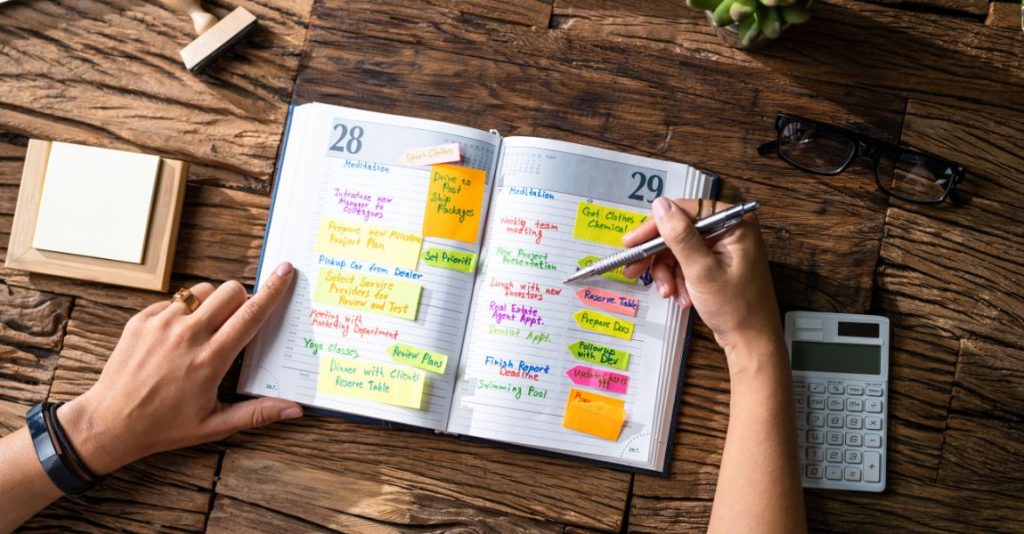 28
Sport Clothes
Meditation
Drive to
Post
Ship
Packages
Introduce new
Manager to
colleagues
Prepare new
Project Plan
Set Prioriti
Pickup Car from Dealer
Select Service
Providers for
Review and Test
Meeting with
Marketing Department
Yoga Classes
Review Plans
Dinner with Clients
Reserve Table
29
Meditation
Get Clothes
Chemical
Weekly team
meeting
New Project
Presentation
Lunch with new
Investors
Reserve Table
Real Estate
Agent Appt.
Prepare Docs
Dentist Appt.
Followup
with Dev
Finish Report
Deadline
Update Charts
Swimming Pool